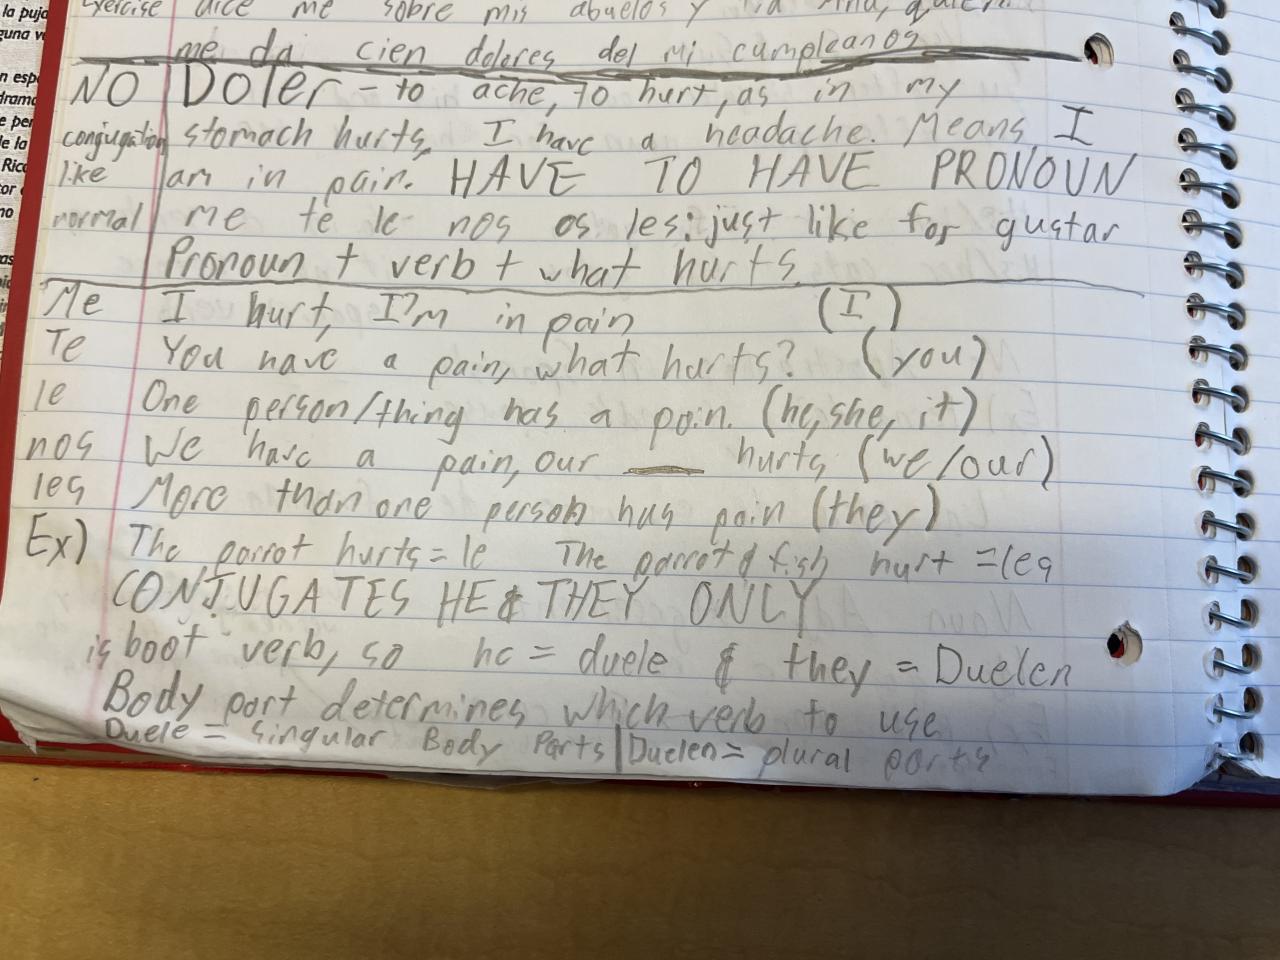 exercise dice me sobre mis abuelos y tia Ana, quien
me da cien dolores del mi cumpleanos
NO | Doler - to ache, to hurt, as in my
conjugation | stomach hurts, I have a headache. Means, I
like | am in pain. HAVE TO HAVE PRONOUN
normal | me te le nos os les: just like for gustar
Pronoun + verb + what hurts.
Me I hurt, I'm in pain (I)
Te You have a pain, what hurts? (you)
le One person/thing has a pain. (he, she, it)
nos We have a pain, our ____ hurts (we/our)
les More than one person has pain (they)
Ex) The parrot hurts = le The parrot & fish hurt = les
CONJUGATES HE & THEY ONLY
is boot verb, so he = duele & they = Duelen
Body part determines which verb to use
Duele = Singular Body Parts | Duelen = plural parts
la puja
guna v
n esp
drama
e per
e la
Rico
tor
no
as